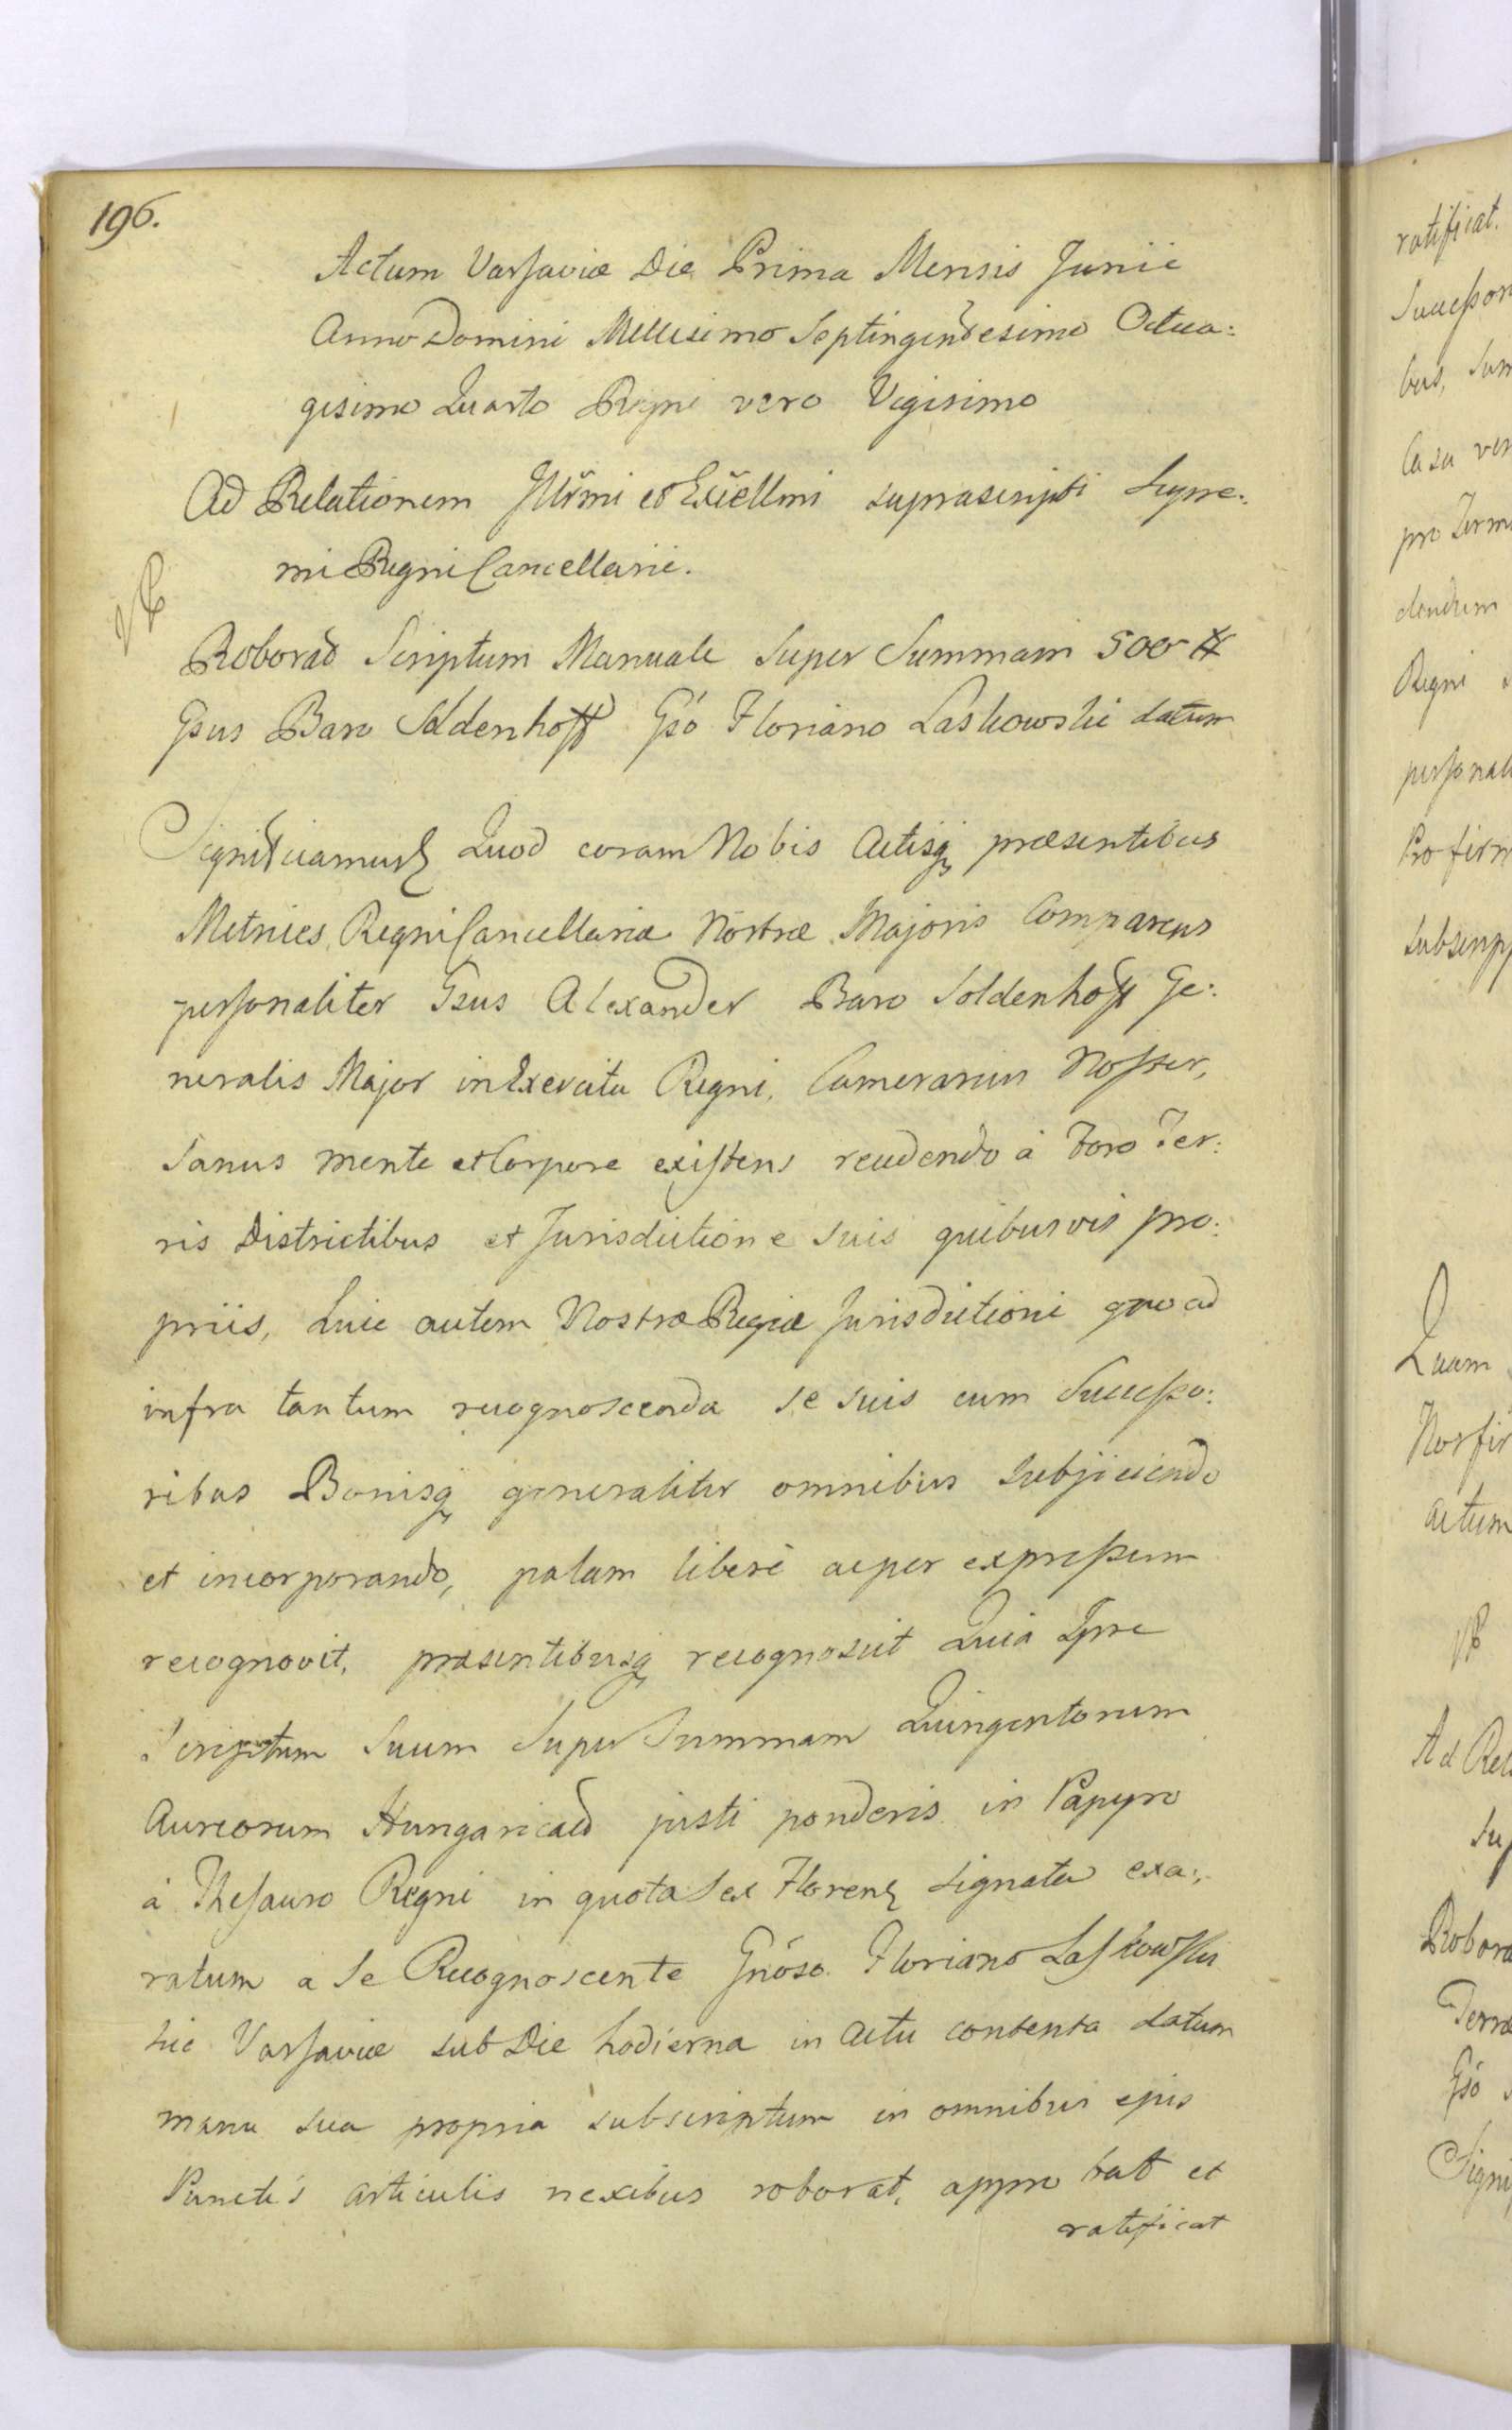 196.
Actum Varsaviæ Die Prima Mensis Junii
Anno Domini Millesimo Septingentesimo Octua:
gesimo Quarto Regni vero Vigesimo
Ad Relationem Illr̃mi et Excellmi suprascripti Supre:
mi Regni Cancellarii.
Roborat Scriptum Manuale Super Summam 500 #
Gsus Baro Soldenhoff Gsó Floriano Laskowski datum
Significamus Quod coram Nobis Actisq præsentibus
Metrices Regni Cancellariæ Nostræ Majoris Comparens
personaliter Gsus Alexander Baro Soldenhoff Ge:
neralis Major in Exercitu Regni, Camerarius Noster,
Sanus mente et Corpore existens recedendo à Foro Ter:
ris Districtibus et Jurisdictione suis quibusvis pro:
priis, huic autem Nostræ Regiæ Jurisdictioni quo ad
infra tantum recognoscenda se suis cum Successo:
ribus Bonisq generaliter omnibus subjiciendo
et incorporando, palam liberè ac per expressum
recognovit, præsentibusq recognoscit Quia Ipse
Scriptum Suum Super Summam Quingentorum
Aureorum Hungaricał justi ponderis in Papyro
à Thesauro Regni in quota Sex Floren signata exa:
ratum a Se Recognoscente Gnõso Floriano Laskowski
hic Varsaviæ sub Die hodierna in Actu contenta datum
manu sua propria subscriptum in omnibus ejus
Punctis articulis nexibus roborat, approbat et
ratificat
ratificat.